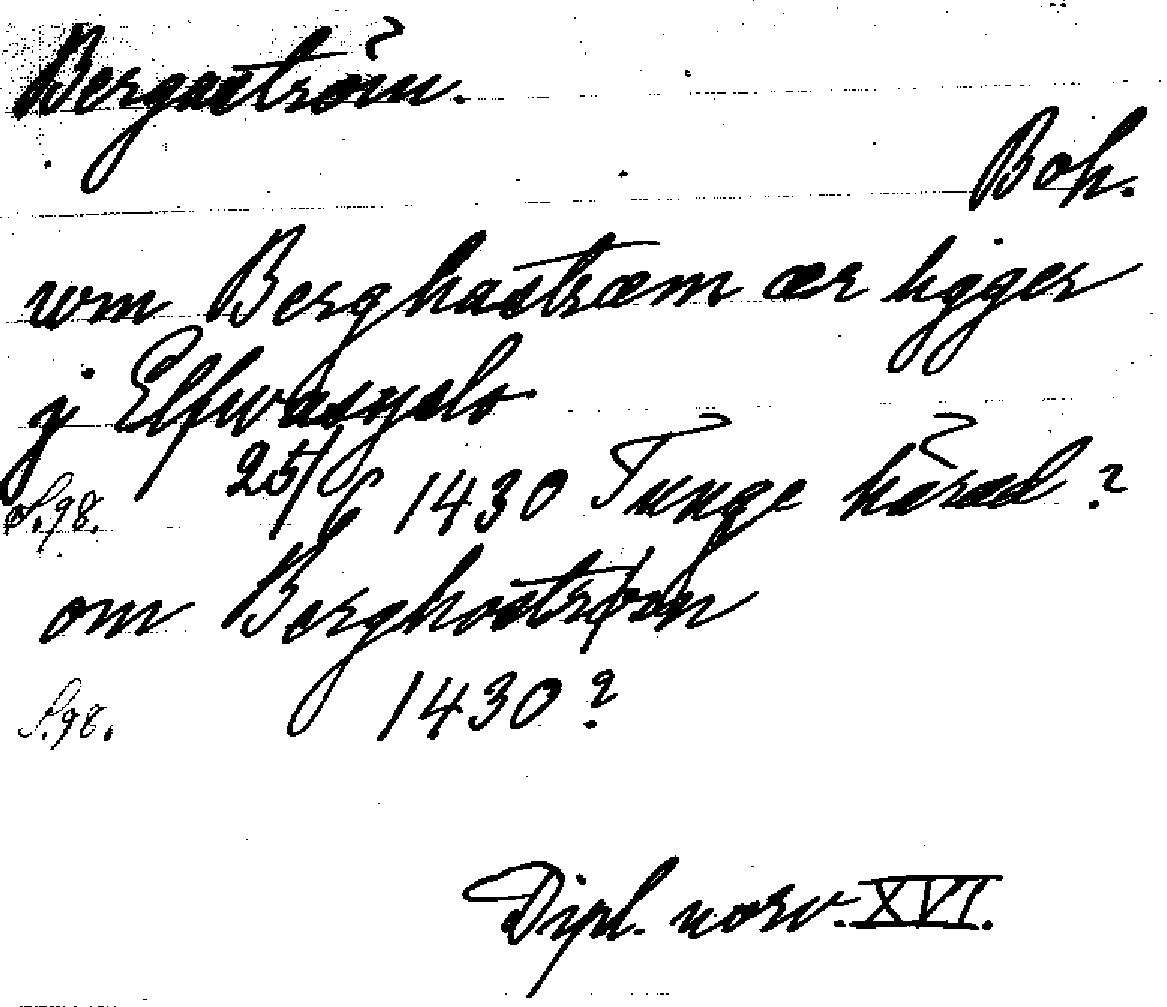 Bergaström.
Boh.
um Berghastrœm œr ligger
j Elfwasysls
S. 98. 25/6 1430 Tunge härad?
om Berghostrøm
S. 98. 1430?
Dipl. norv. XVI.